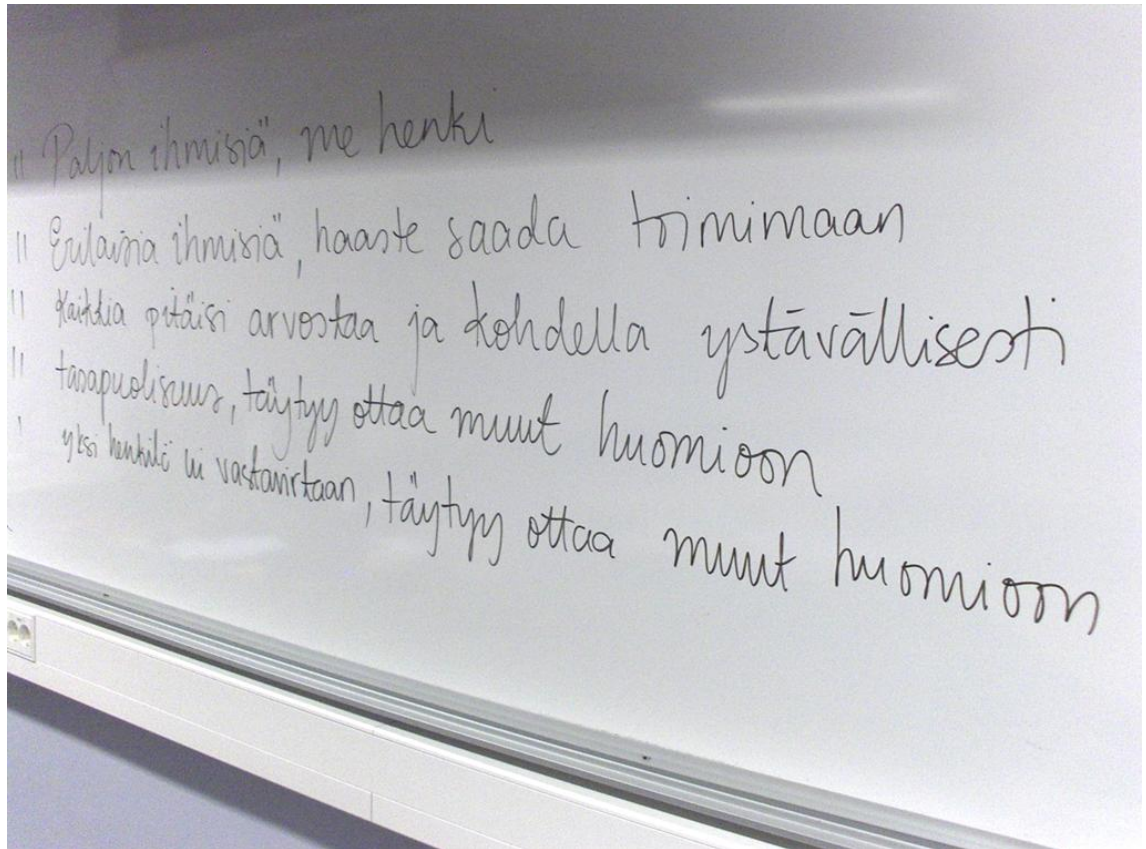 " Paljon ihmisiä", me henki
" Erilaisia ihmisiä", haaste saada toimimaan
" Kaikkia pitäisi arvostaa ja kohdella ystävällisesti
" tasapuolisuus, täytyy ottaa muut huomioon
' yksi henkilö ui vastavirtaan, täytyy ottaa muut huomioon